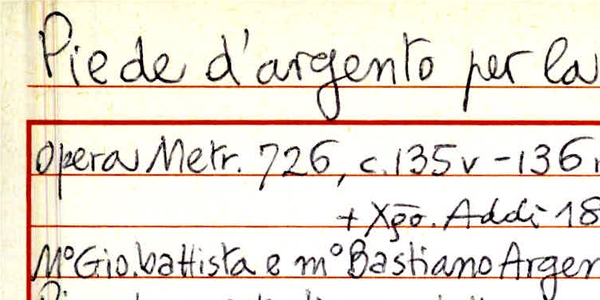 Piede d'argento per la
Opera Metr. 726, c.135v-136
+ Xp̄o. Addì 18
M° Gio.battista e m° Bastiano Argen